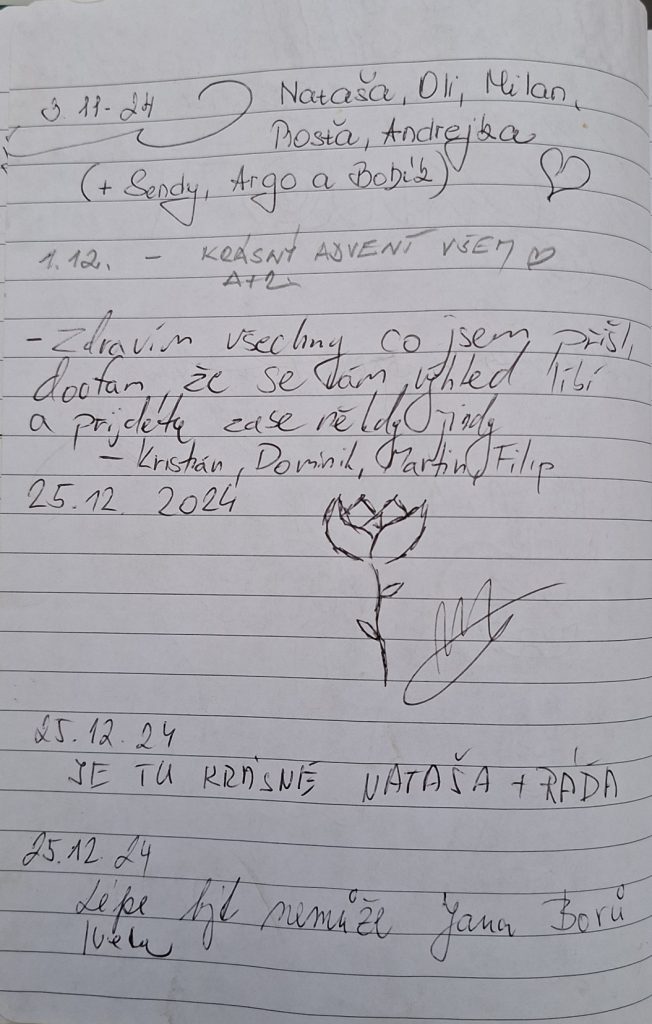 3.11-24 Nataša, Oli, Milan,
Rosťa, Andrejka
(+ Sendy, Argo a Bobík)
1.12. - KRÁSNÝ ADVENT VŠEM
- Zdravím všechny co jsem přišli,
doofam, že se vám výhled líbí
a prijdéte zase někdy jindy
- Kristián, Dominik, Martin, Filip
25.12. 2024
25.12.24
JE TU KRÁSNĚ NATAŠA + RÁĎA
25.12.24
Lépe být nemůže Jana Borů
Iveta